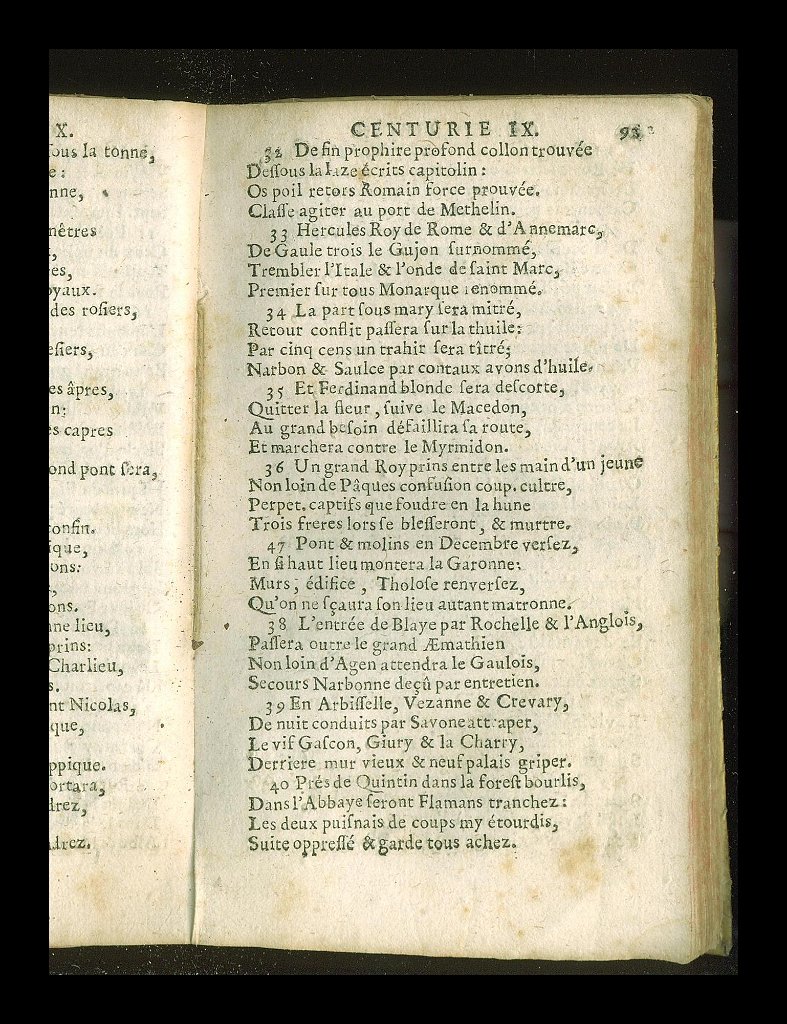 X.
ſous la tonne,
e:
nne,
nêtres
es,
oyaux.
des roſiers,
eſiers,
es âpres,
n:
es capres
ond pont ſera,
confin.
ique,
ons:
ons.
ne lieu,
prins:
Charlieu,
s.
nt Nicolas,
que,
ppique.
ortara,
drez,
drez.
CENTURIE IX. 93
32 De fin prophire profond collon trouvée
Deſſous la laze écrits capitolin:
Os poil retors Romain force prouvée.
Claſſe agiter au port de Methelin.
33 Hercules Roy de Rome & d'Annemarc,
De Gaule trois le Gujon ſurnommé,
Trembler l'Itale & l'onde de ſaint Marc,
Premier ſur tous Monarque renommé.
34 La part ſous mary ſera mitré,
Retour conflit paſſera ſur la thuile:
Par cinq cens un trahir ſera tîtré;
Narbon & Saulce par contaux avons d'huile.
35 Et Ferdinand blonde ſera deſcorte,
Quitter la fleur, ſuive le Macedon,
Au grand beſoin défaillira ſa route,
Et marchera contre le Myrmidon.
36 Un grand Roy prins entre les main d'un jeune
Non loin de Pâques confuſion coup. cultre,
Perpet. captifs que foudre en la hune
Trois freres lors ſe bleſſeront, & murtre.
47 Pont & molins en Decembre verſez,
En ſi haut lieu montera la Garonne:
Murs, édifice, Tholoſe renverſez,
Qu'on ne ſçaura ſon lieu autant matronne.
38 L'entrée de Blaye par Rochelle & l'Anglois,
Paſſera outre le grand Æmathien
Non loin d'Agen attendra le Gaulois,
Secours Narbonne deçû par entretien.
39 En Arbiſſelle, Vezanne & Crevary,
De nuit conduits par Savone attraper,
Le vif Gaſcon, Giury & la Charry,
Derriere mur vieux & neuf palais griper.
40 Prés de Quintin dans la foreſt bourlis,
Dans l'Abbaye ſeront Flamans tranchez:
Les deux puiſnais de coups my étourdis,
Suite oppreſſé & garde tous achez.